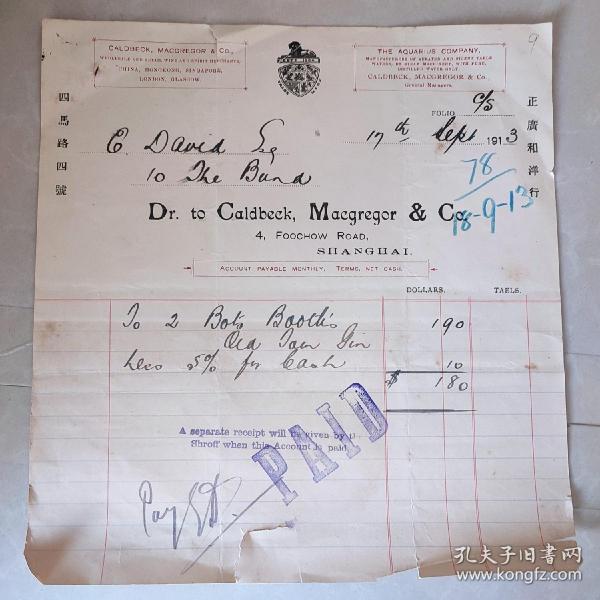 CALDBECK, MACGREGOR & CO.,
WHOLESALE AND RETAIL WINE AND SPIRIT MERCHANTS,
CHINA, HONGKONG, SINGAPORE,
LONDON, GLASGOW.
THE AQUARIUS COMPANY,
MANUFACTURERS OF AERATED AND PURE TABLE
WATERS,
DISTILLED WATER ONLY.
CALDBECK, MACGREGOR & Co.
General Managers.
9
四馬路四號
正廣和洋行
FOLIO C/S
17th Sept 1913
E. David Esq
10 The Bund
78
18-9-13
Dr. to Caldbeck, Macgregor & Co.
4, FOOCHOW ROAD,
SHANGHAI.
ACCOUNT PAYABLE MONTHLY. TERMS, NET CASH.
DOLLARS. TAELS.
To 2 Bots Booth's 190
Old Tom Gin
Less 5% for Cash 10
$ 180
A separate receipt will be given by
Shroff when this Account is paid.
PAID
Pay
孔夫子旧书网
www.kongfz.com